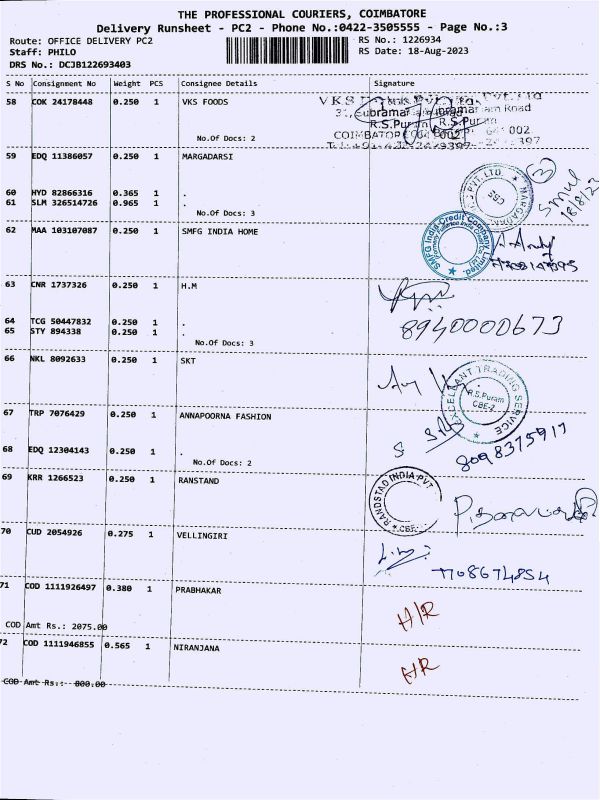 THE PROFESSIONAL COURIERS, COIMBATORE
Delivery Runsheet - PC2 - Phone No.:0422-3505555 - Page No.:3
Route: OFFICE DELIVERY PC2 RS No.: 1226934
Staff: PHILO RS Date: 18-Aug-2023
DRS No.: DCJB122693403
S No Consignment No Weight PCS Consignee Details Signature
58 COK 24178448 0.250 1 VKS FOODS
R.S.Puram
No.Of Docs: 2
59 EDQ 11386057 0.250 1 MARGADARSI
60 HYD 82866316 0.365 1 .
61 SLM 326514726 0.965 1 .
No.Of Docs: 3
18/8/23
62 MAA 103107087 0.250 1 SMFG INDIA HOME
SMFG India Credit Company Limited
63 CNR 1737326 0.250 1 H.M
64 TCG 50447832 0.250 1 .
65 STY 894338 0.250 1 .
8940000673
No.Of Docs: 3
66 NKL 8092633 0.250 1 SKT
EXCELLANT TRADING SERVICE
R.S.Puram
CBE-2
67 TRP 7076429 0.250 1 ANNAPOORNA FASHION
68 EDQ 12304143 0.250 1 .
8098375917
No.Of Docs: 2
69 KRR 1266523 0.250 1 RANSTAND
RANDSTAD INDIA PVT
CBE
70 CUD 2054926 0.275 1 VELLINGIRI
7708674854
71 COD 1111926497 0.380 1 PRABHAKAR
H/R
COD Amt Rs.: 2075.00
72 COD 1111946855 0.565 1 NIRANJANA
HR
COD Amt Rs.: 800.00